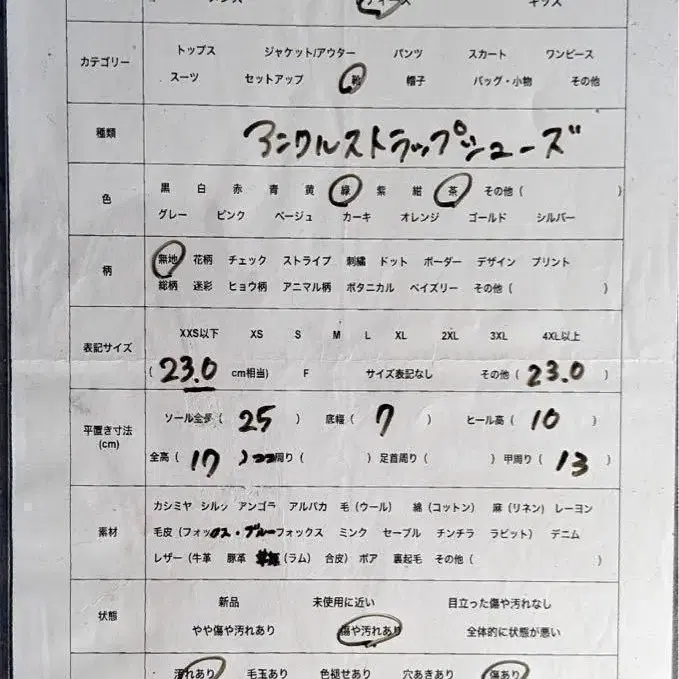 カテゴリー
トップス ジャケット/アウター パンツ スカート ワンピース
スーツ セットアップ 靴 帽子 バッグ・小物 その他
種類
アンクルストラップシューズ
色
黒 白 赤 青 黄 緑 紫 紺 茶 その他 ( )
グレー ピンク ベージュ カーキ オレンジ ゴールド シルバー
柄
無地 花柄 チェック ストライプ 刺繍 ドット ボーダー デザイン プリント
総柄 迷彩 ヒョウ柄 アニマル柄 ボタニカル ペイズリー その他 ( )
表記サイズ
XXS以下 XS S M L XL 2XL 3XL 4XL以上
( 23.0 cm相当) F サイズ表記なし その他 ( 23.0 )
平置き寸法
(cm)
ソール全長 ( 25 ) 底幅 ( 7 ) ヒール高 ( 10 )
全高 ( 17 ) 周り ( ) 足首周り ( ) 甲周り ( 13 )
素材
カシミヤ シルク アンゴラ アルパカ 毛 (ウール) 綿 (コットン) 麻 (リネン) レーヨン
毛皮 (フォックス・ブルーフォックス ミンク セーブル チンチラ ラビット) デニム
レザー (牛革 豚革 (ラム) 合皮) ボア 裏起毛 その他 ( )
状態
新品 未使用に近い 目立った傷や汚れなし
やや傷や汚れあり 傷や汚れあり 全体的に状態が悪い
汚れあり 毛玉あり 色褪せあり 穴あきあり 傷あり